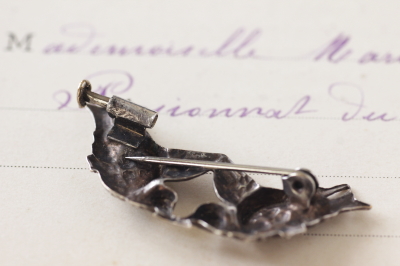 Mademoiselle Mar
Pensionnat du